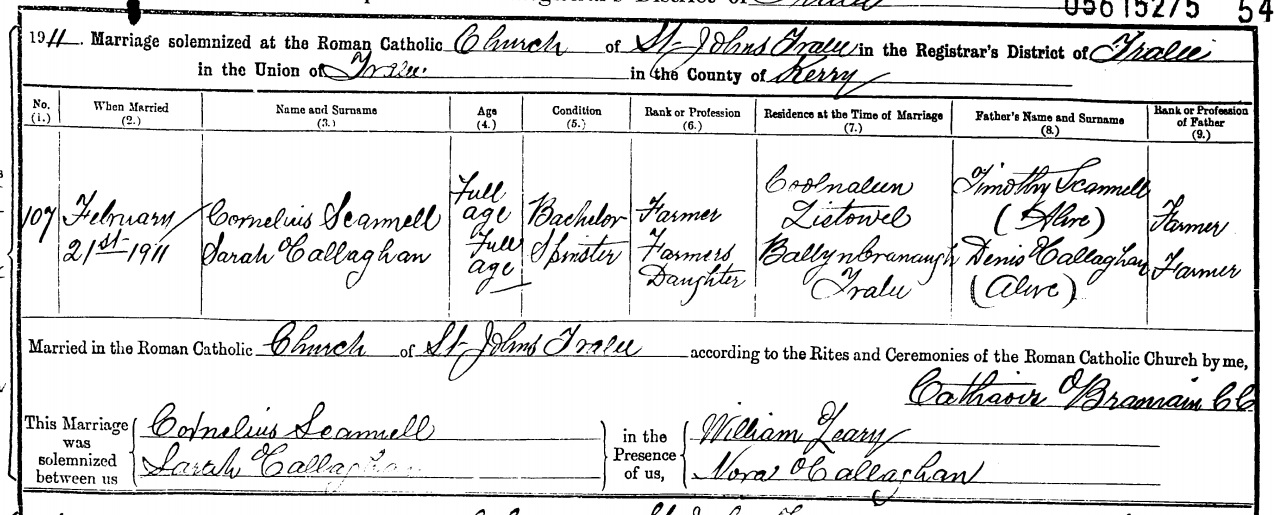 05615275 54
1911. Marriage solemnized at the Roman Catholic Church of St Johns Tralee in the Registrar's District of Tralee
in the Union of Tralee in the County of Kerry
No. (1.) When Married (2.) Name and Surname (3.) Age (4.) Condition (5.) Rank or Profession (6.) Residence at the Time of Marriage (7.) Father's Name and Surname (8.) Rank or Profession of Father (9.)
107 February 21st 1911
Cornelius Scannell Full age Bachelor Farmer Coolnaleen Listowel Timothy Scannell (Alive) Farmer
Sarah O'Callaghan Full age Spinster Farmers Daughter Tralee Denis O'Callaghan (Alive) Farmer
Married in the Roman Catholic Church of St Johns Tralee according to the Rites and Ceremonies of the Roman Catholic Church by me,
CC
This Marriage was solemnized between us
Cornelius Scannell
Sarah O'Callaghan
in the Presence of us,
William Leary
Nora O'Callaghan